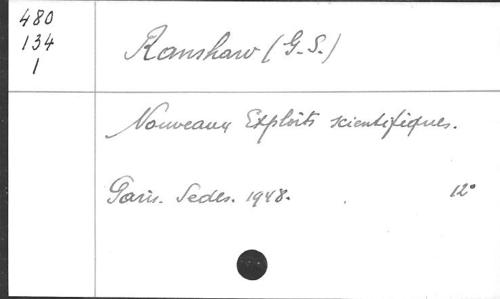 480
134
1
Ranshaw (G.S.)
Nouveaux Exploits scientifiques.
Paris. Sedes. 1948. 12°